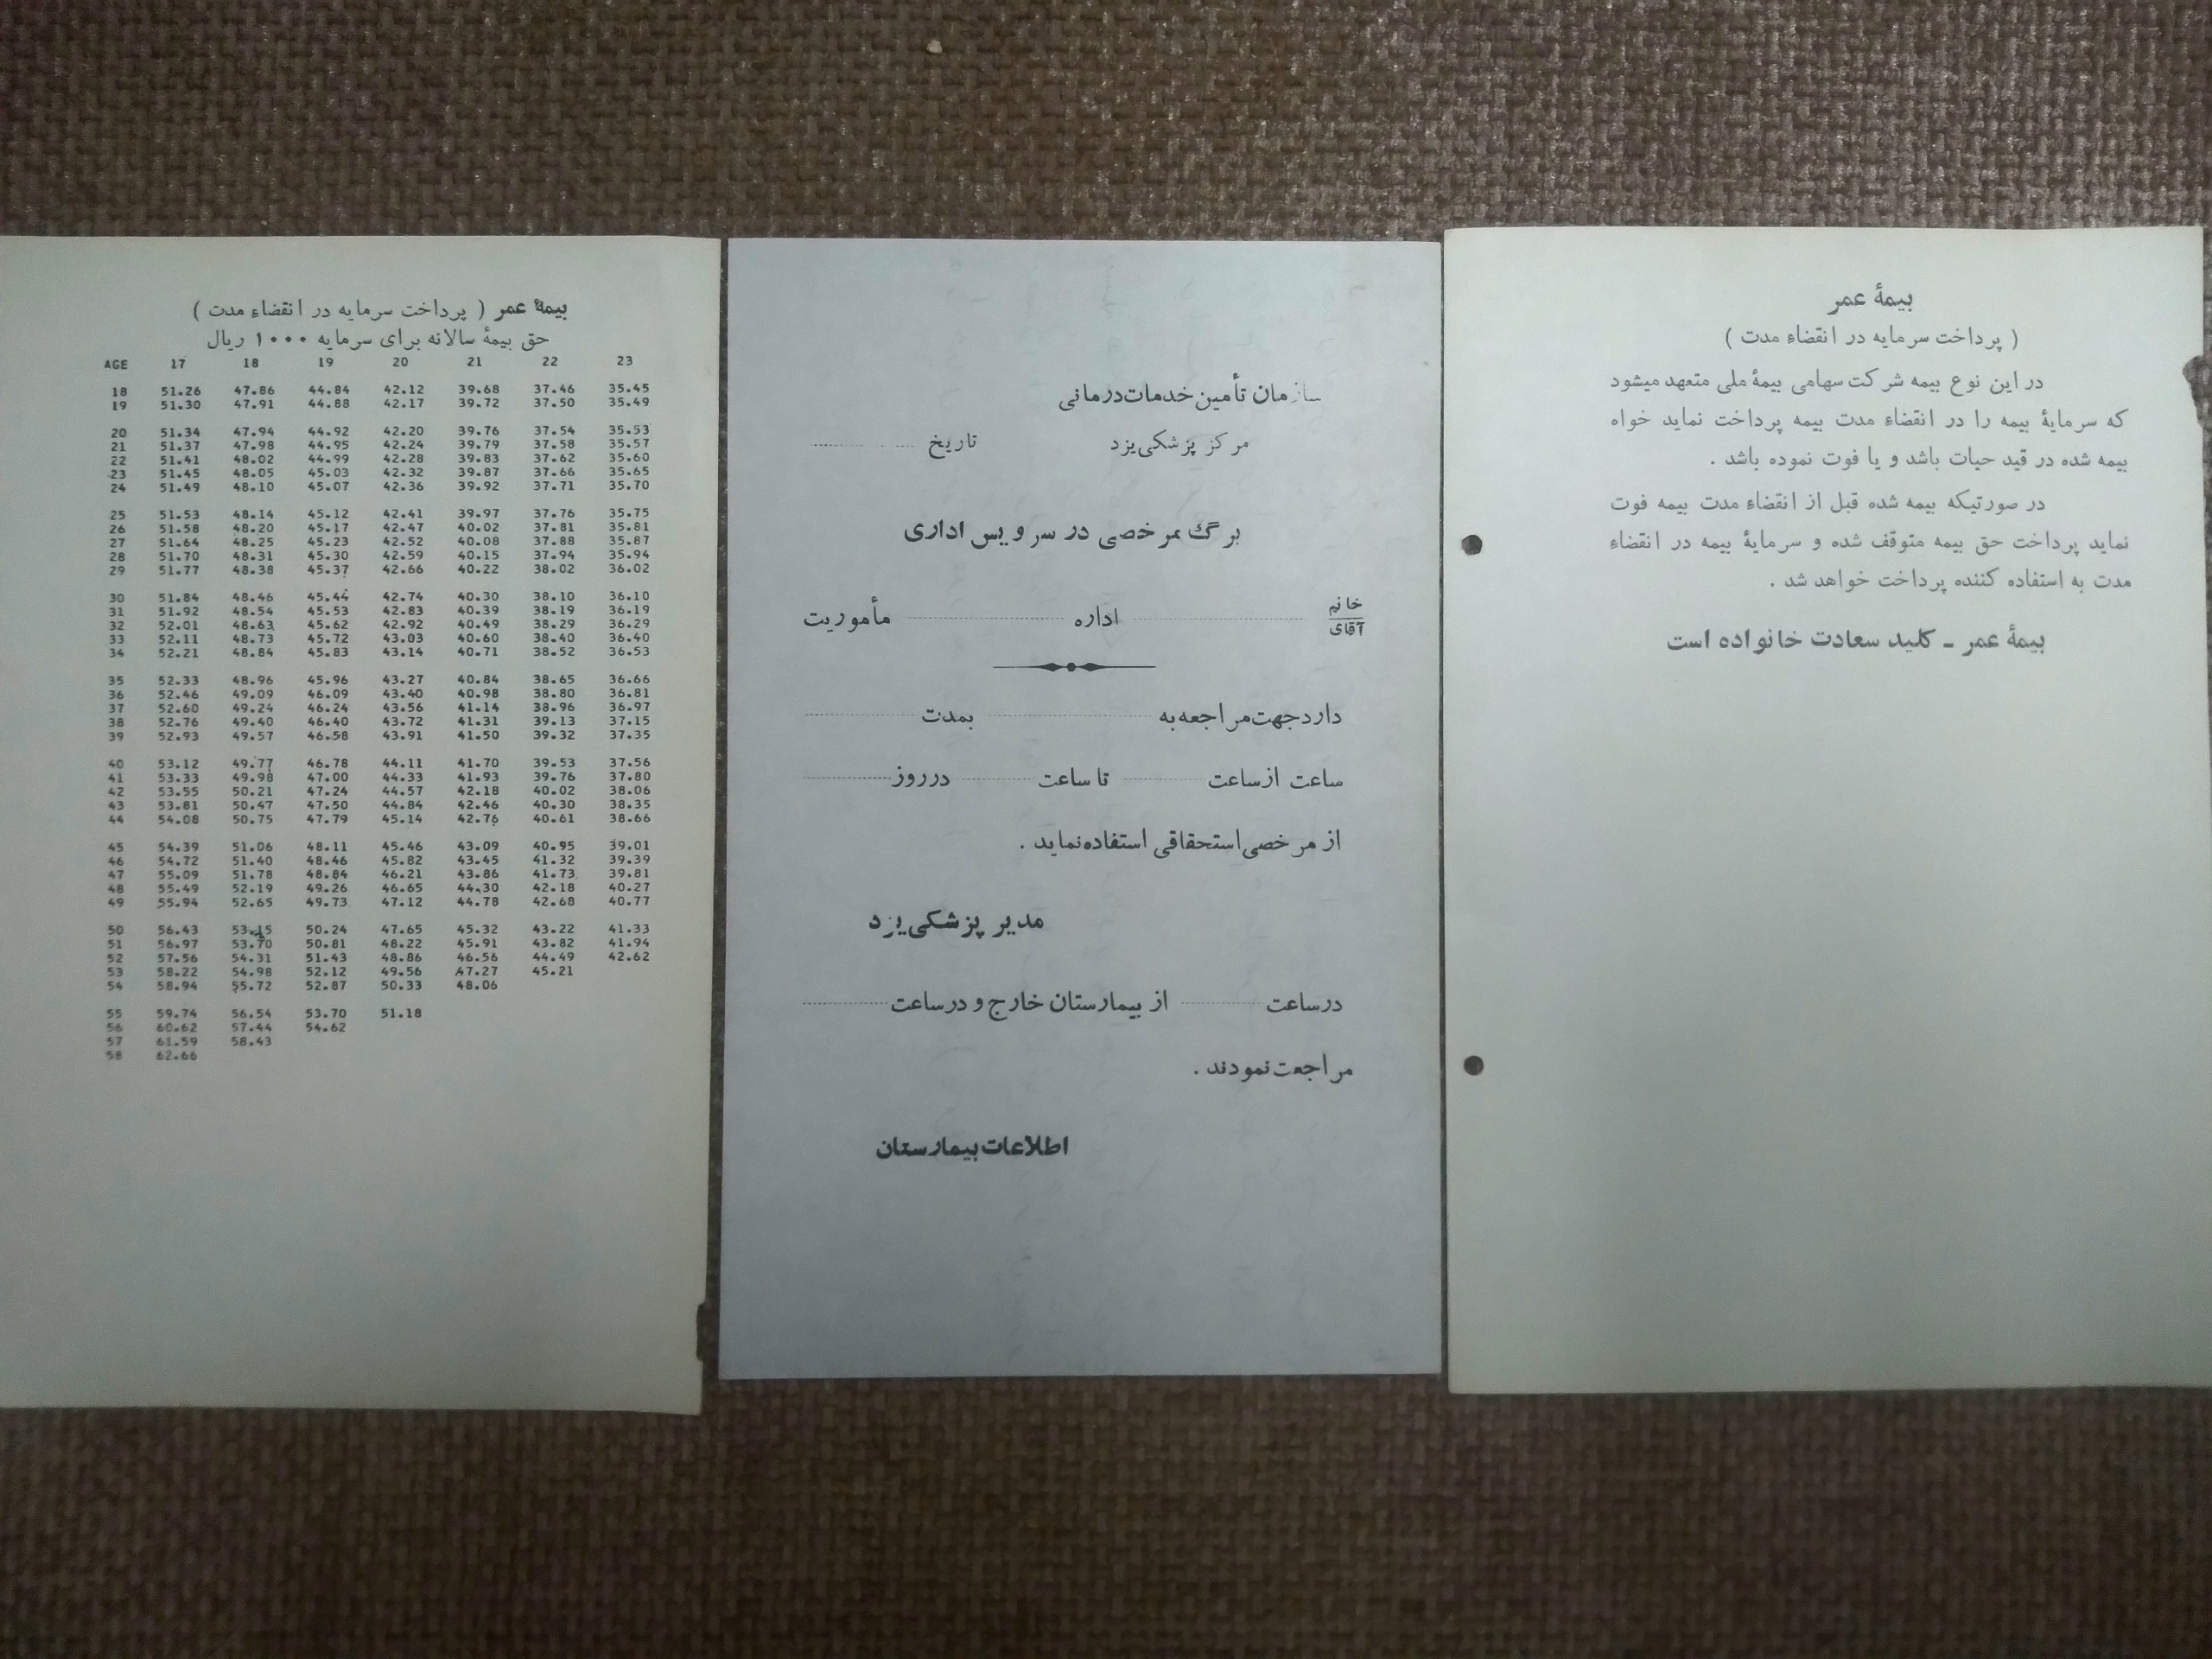 بیمهٔ عمر ( پرداخت سرمایه در انقضاء مدت )
حق بیمهٔ سالانه برای سرمایه ۱۰۰۰ ریال
AGE 17 18 19 20 21 22 23
18 51.26 47.86 44.84 42.12 39.68 37.46 35.45
19 51.30 47.91 44.88 42.17 39.72 37.50 35.49
20 51.34 47.94 44.92 42.20 39.76 37.54 35.53
21 51.37 47.98 44.95 42.24 39.79 37.58 35.57
22 51.41 48.02 44.99 42.28 39.83 37.62 35.60
23 51.45 48.05 45.03 42.32 39.87 37.66 35.65
24 51.49 48.10 45.07 42.36 39.92 37.71 35.70
25 51.53 48.14 45.12 42.41 39.97 37.76 35.75
26 51.58 48.20 45.17 42.47 40.02 37.81 35.81
27 51.64 48.25 45.23 42.52 40.08 37.88 35.87
28 51.70 48.31 45.30 42.59 40.15 37.94 35.94
29 51.77 48.38 45.37 42.66 40.22 38.02 36.02
30 51.84 48.46 45.44 42.74 40.30 38.10 36.10
31 51.92 48.54 45.53 42.83 40.39 38.19 36.19
32 52.01 48.63 45.62 42.92 40.49 38.29 36.29
33 52.11 48.73 45.72 43.03 40.60 38.40 36.40
34 52.21 48.84 45.83 43.14 40.71 38.52 36.53
35 52.33 48.96 45.96 43.27 40.84 38.65 36.66
36 52.46 49.09 46.09 43.40 40.98 38.80 36.81
37 52.60 49.24 46.24 43.56 41.14 38.96 36.97
38 52.76 49.40 46.40 43.72 41.31 39.13 37.15
39 52.93 49.57 46.58 43.91 41.50 39.32 37.35
40 53.12 49.77 46.78 44.11 41.70 39.53 37.56
41 53.33 49.98 47.00 44.33 41.93 39.76 37.80
42 53.55 50.21 47.24 44.57 42.18 40.02 38.06
43 53.81 50.47 47.50 44.84 42.46 40.30 38.35
44 54.08 50.75 47.79 45.14 42.76 40.61 38.66
45 54.39 51.06 48.11 45.46 43.09 40.95 39.01
46 54.72 51.40 48.46 45.82 43.45 41.32 39.39
47 55.09 51.78 48.84 46.21 43.86 41.73 39.81
48 55.49 52.19 49.26 46.65 44.30 42.18 40.27
49 55.94 52.65 49.73 47.12 44.78 42.68 40.77
50 56.43 53.15 50.24 47.65 45.32 43.22 41.33
51 56.97 53.70 50.81 48.22 45.91 43.82 41.94
52 57.56 54.31 51.43 48.86 46.56 44.49 42.62
53 58.22 54.98 52.12 49.56 47.27 45.21
54 58.94 55.72 52.87 50.33 48.06
55 59.74 56.54 53.70 51.18
56 60.62 57.44 54.62
57 61.59 58.43
58 62.66
سازمان تأمین خدمات درمانی
مرکز پزشکی یزد تاریخ
برگ مرخصی در سرویس اداری
خانم
آقای اداره مأموریت
دارد جهت مراجعه به بمدت
ساعت از ساعت تا ساعت در روز
از مرخصی استحقاقی استفاده نماید .
مدیر پزشکی یزد
در ساعت از بیمارستان خارج و در ساعت
مراجعت نمودند .
اطلاعات بیمارستان
بیمهٔ عمر
( پرداخت سرمایه در انقضاء مدت )
در این نوع بیمه شرکت سهامی بیمهٔ ملی متعهد میشود
که سرمایهٔ بیمه را در انقضاء مدت بیمه پرداخت نماید خواه
بیمه شده در قید حیات باشد و یا فوت نموده باشد .
در صورتیکه بیمه شده قبل از انقضاء مدت بیمه فوت
نماید پرداخت حق بیمه متوقف شده و سرمایهٔ بیمه در انقضاء
مدت به استفاده کننده پرداخت خواهد شد .
بیمهٔ عمر - کلید سعادت خانواده است